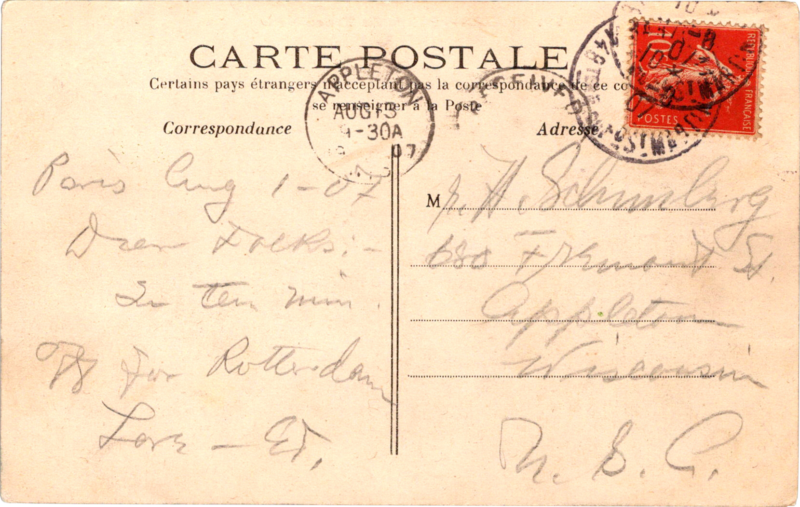 CARTE POSTALE
Certains pays étrangers n'acceptant pas la correspondance de ce co
se renseigner à la Poste
Correspondance
Adresse
APPLETON
AUG 13
-30A
07
WIS
RECEIVED
10
REPUBLIQUE FRANÇAISE
POSTES
Paris Aug 1-07
Dear Folks:-
In ten min.
off for Rotterdam
Love - Ed.
M
H. Schomberg
680 Fremont St.
Appleton
Wisconsin
U. S. A.